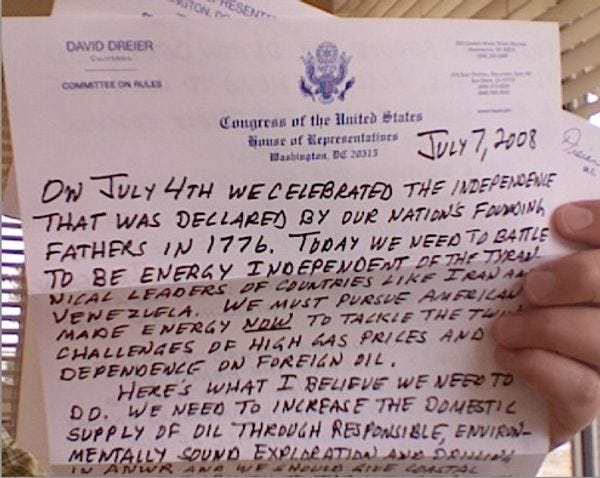 DAVID DREIER
CALIFORNIA
COMMITTEE ON RULES
Congress of the United States
House of Representatives
Washington, DC 20515
JULY 7, 2008
ON JULY 4TH WE CELEBRATED THE INDEPENDENCE
THAT WAS DECLARED BY OUR NATION'S FOUNDING
FATHERS IN 1776. TODAY WE NEED TO BATTLE
TO BE ENERGY INDEPENDENT OF THE TYRAN-
NICAL LEADERS OF COUNTRIES LIKE IRAN AN
VENEZUELA. WE MUST PURSUE AMERICAN
MADE ENERGY NOW TO TACKLE THE TWIN
CHALLENGES OF HIGH GAS PRICES AND
DEPENDENCE ON FOREIGN OIL.
HERE'S WHAT I BELIEVE WE NEED TO
DO. WE NEED TO INCREASE THE DOMESTIC
SUPPLY OF OIL THROUGH RESPONSIBLE, ENVIRON-
MENTALLY SOUND EXPLORATION AND DRILLING
IN ANWR AND WE SHOULD GIVE COASTAL